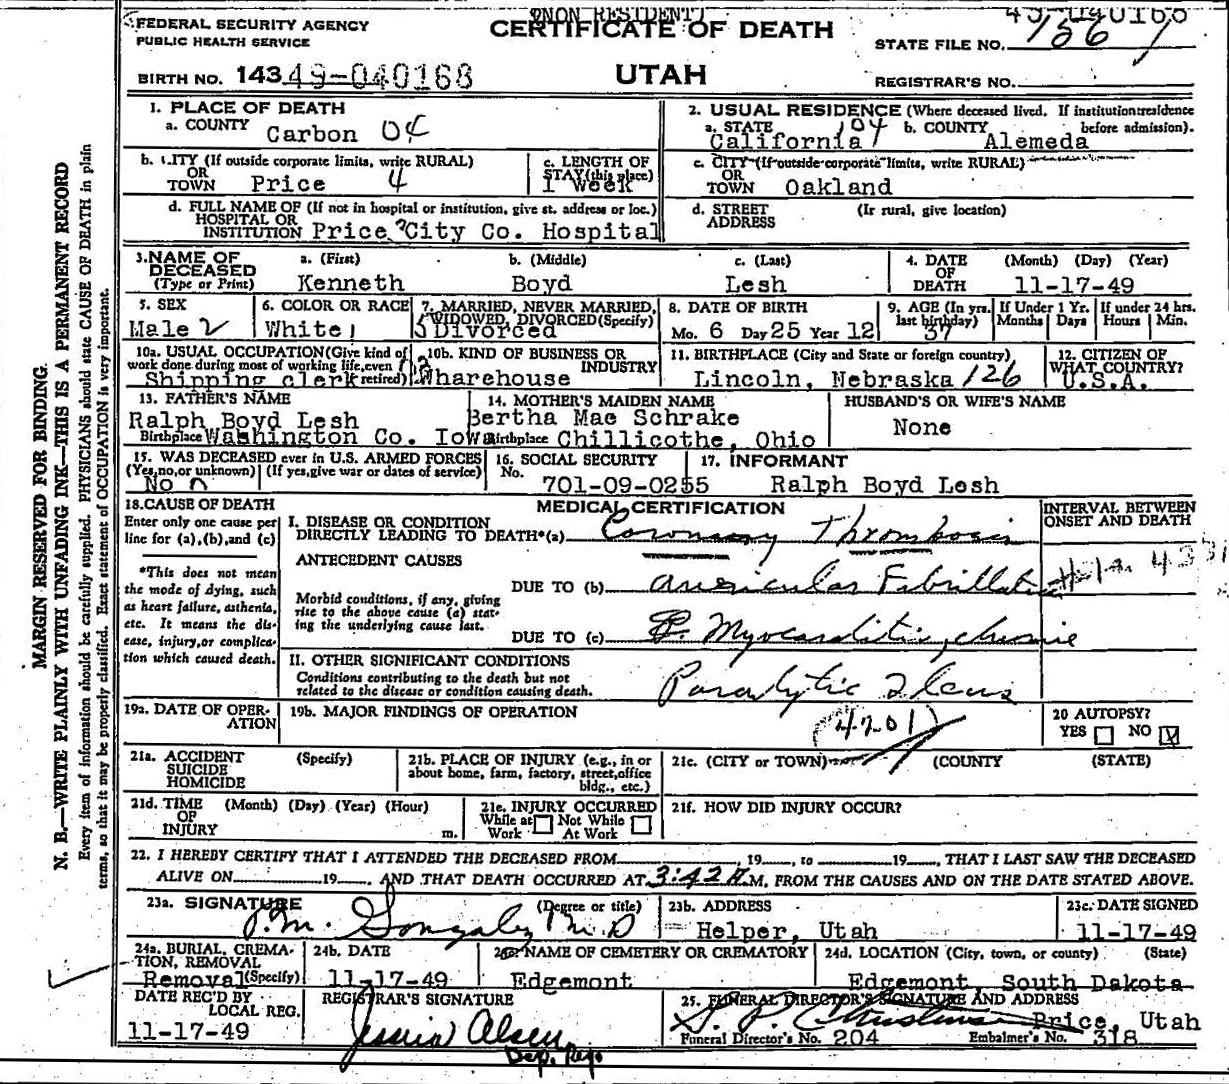 (NON RESIDENT)
FEDERAL SECURITY AGENCY
PUBLIC HEALTH SERVICE
CERTIFICATE OF DEATH
STATE FILE NO.
BIRTH NO. 143 49-040168
UTAH
REGISTRAR'S NO.
1. PLACE OF DEATH
a. COUNTY Carbon 04
2. USUAL RESIDENCE (Where deceased lived. If institution: residence before admission).
a. STATE California 104 b. COUNTY Alemeda
b. CITY (If outside corporate limits, write RURAL) OR TOWN Price 4
c. LENGTH OF STAY (this place) 1 week
c. CITY (If outside corporate limits, write RURAL) OR TOWN Oakland
d. FULL NAME OF (If not in hospital or institution, give st. address or loc.) HOSPITAL OR INSTITUTION Price City Co. Hospital
d. STREET ADDRESS (If rural, give location)
3. NAME OF DECEASED (Type or Print)
a. (First) Kenneth
b. (Middle) Boyd
c. (Last) Lesh
4. DATE OF DEATH (Month) (Day) (Year) 11-17-49
5. SEX Male 2
6. COLOR OR RACE White 1
7. MARRIED, NEVER MARRIED, WIDOWED, DIVORCED (Specify) Divorced
8. DATE OF BIRTH Mo. 6 Day 25 Year 12
9. AGE (In yrs. last birthday) 37
If Under 1 Yr. Months Days
If under 24 hrs. Hours Min.
10a. USUAL OCCUPATION (Give kind of work done during most of working life, even if retired) Shipping clerk
10b. KIND OF BUSINESS OR INDUSTRY Wharehouse
11. BIRTHPLACE (City and State or foreign country) Lincoln, Nebraska 126
12. CITIZEN OF WHAT COUNTRY? U.S.A.
13. FATHER'S NAME
Ralph Boyd Lesh
Birthplace Washington Co. Iowa
14. MOTHER'S MAIDEN NAME
Bertha Mae Schrake
Birthplace Chillicothe, Ohio
HUSBAND'S OR WIFE'S NAME
None
15. WAS DECEASED ever in U.S. ARMED FORCES
(Yes, no, or unknown) (If yes, give war or dates of service)
No
16. SOCIAL SECURITY No. 701-09-0255
17. INFORMANT
Ralph Boyd Lesh
18. CAUSE OF DEATH
Enter only one cause per line for (a), (b), and (c)
*This does not mean the mode of dying, such as heart failure, asthenia, etc. It means the disease, injury, or complication which caused death.
MEDICAL CERTIFICATION
INTERVAL BETWEEN ONSET AND DEATH
I. DISEASE OR CONDITION DIRECTLY LEADING TO DEATH*(a) Coronary Thrombosis
ANTECEDENT CAUSES
Morbid conditions, if any, giving rise to the above cause (a) stating the underlying cause last.
DUE TO (b) auricular Fibrillation
DUE TO (c) Myocarditis, chronic
II. OTHER SIGNIFICANT CONDITIONS
Conditions contributing to the death but not related to the disease or condition causing death.
Paralytic Ileus
19a. DATE OF OPERATION
19b. MAJOR FINDINGS OF OPERATION
4201
20 AUTOPSY?
YES NO
21a. ACCIDENT SUICIDE HOMICIDE (Specify)
21b. PLACE OF INJURY (e.g., in or about home, farm, factory, street, office bldg., etc.)
21c. (CITY or TOWN) (COUNTY) (STATE)
21d. TIME OF INJURY (Month) (Day) (Year) (Hour) m.
21e. INJURY OCCURRED
While at Work Not While At Work
21f. HOW DID INJURY OCCUR?
22. I HEREBY CERTIFY THAT I ATTENDED THE DECEASED FROM , 19 , to 19 , THAT I LAST SAW THE DECEASED
ALIVE ON 19 , AND THAT DEATH OCCURRED AT 3:42 A.M. FROM THE CAUSES AND ON THE DATE STATED ABOVE.
23a. SIGNATURE (Degree or title)
M. Gonzalez M.D
23b. ADDRESS
Helper, Utah
23c. DATE SIGNED
11-17-49
24a. BURIAL, CREMATION, REMOVAL (Specify) Removal
24b. DATE
11-17-49
24c. NAME OF CEMETERY OR CREMATORY
Edgemont
24d. LOCATION (City, town, or county) (State)
Edgemont, South Dakota
DATE REC'D BY LOCAL REG.
11-17-49
REGISTRAR'S SIGNATURE
Olsen
Dep. Reg.
25. FUNERAL DIRECTOR'S SIGNATURE AND ADDRESS
Price, Utah
Funeral Director's No. 204 Embalmer's No. 318
MARGIN RESERVED FOR BINDING.
N. B.—WRITE PLAINLY WITH UNFADING INK—THIS IS A PERMANENT RECORD
Every item of information should be carefully supplied. PHYSICIANS should state CAUSE OF DEATH in plain
terms, so that it may be properly classified. Exact statement of OCCUPATION is very important.